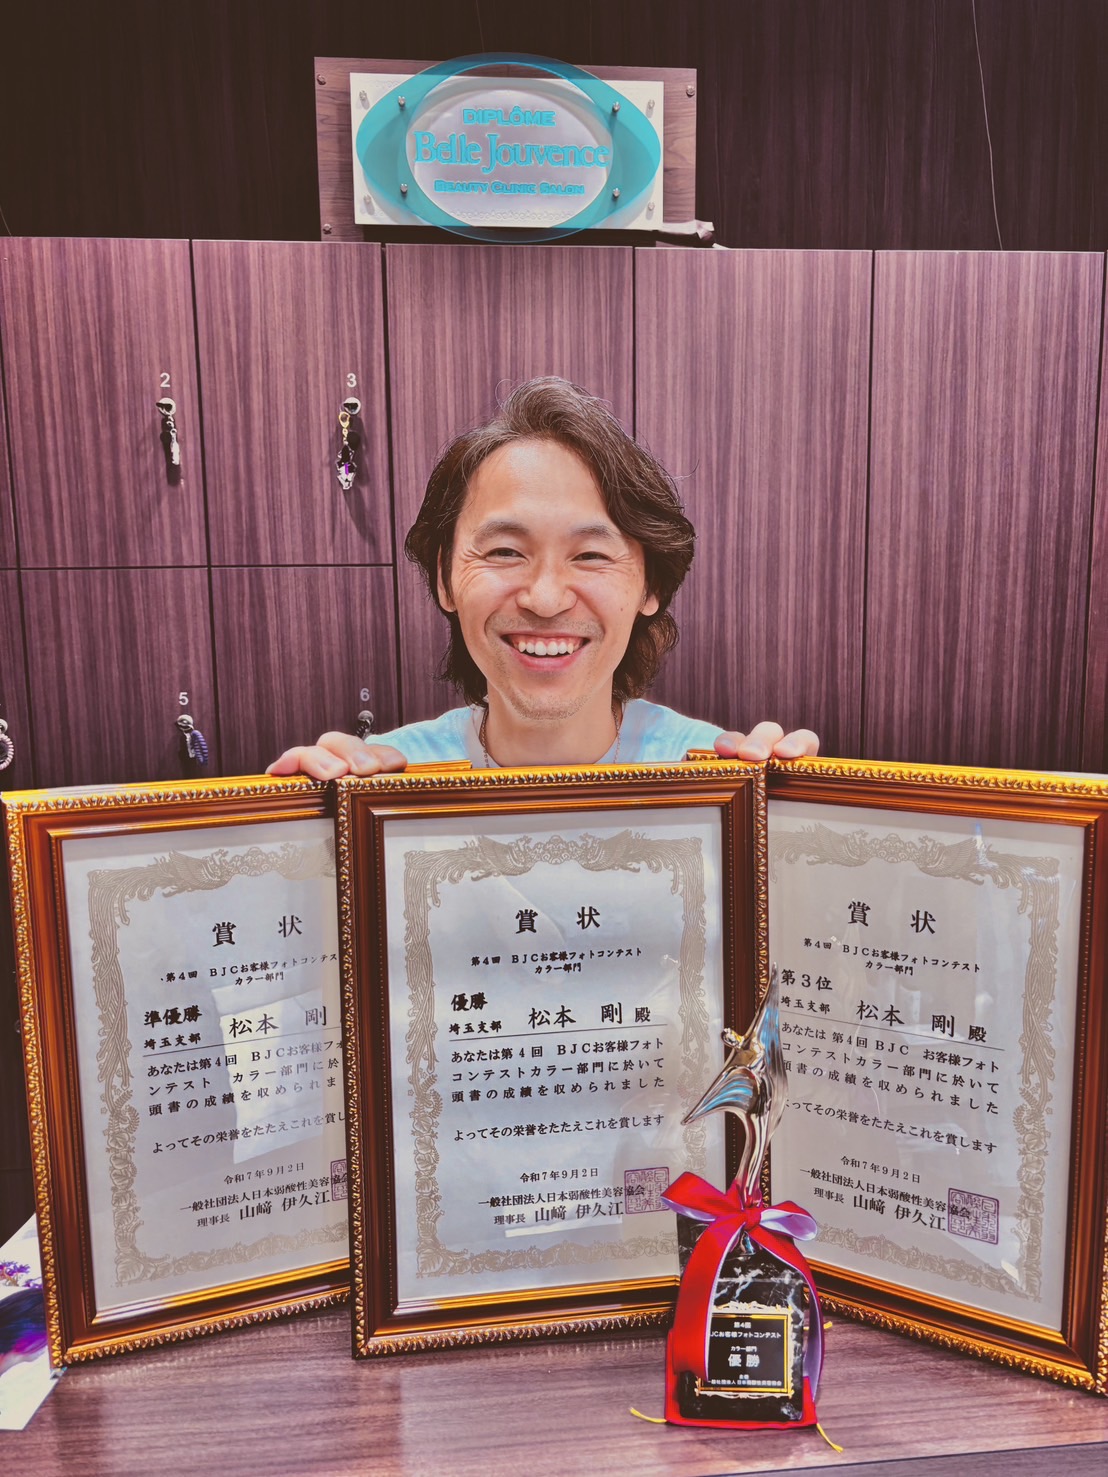 DIPLÔME
Belle Jouvence
BEAUTY CLINIC SALON
2
3
5
6
賞状
第4回 BJCお客様フォトコンテス
カラー部門
準優勝
埼玉支部 松本 剛
あなたは第4回 BJCお客様フォ
ンテスト カラー部門に於
頭書の成績を収められま
よってその栄誉をたたえこれを賞し
令和7年9月2日
一般社団法人日本弱酸性美容協会
理事長 山﨑 伊久江
賞状
第4回 BJCお客様フォトコンテスト
カラー部門
優勝
埼玉支部 松本 剛 殿
あなたは第4回 BJCお客様フォト
コンテストカラー部門に於いて
頭書の成績を収められました
よってその栄誉をたたえこれを賞します
令和7年9月2日
一般社団法人日本弱酸性美容協会
理事長 山﨑 伊久江
賞状
第4回 BJCお客様フォトコンテスト
カラー部門
第3位
埼玉支部 松本 剛 殿
あなたは第4回BJC お客様フォト
コンテストカラー部門に於いて
頭書の成績を収められました
よってその栄誉をたたえこれを賞します
令和7年9月2日
一般社団法人日本弱酸性美容協会
理事長 山﨑 伊久江
第4回
BJCお客様フォトコンテスト
カラー部門
優勝
主催
一般社団法人 日本弱酸性美容協会